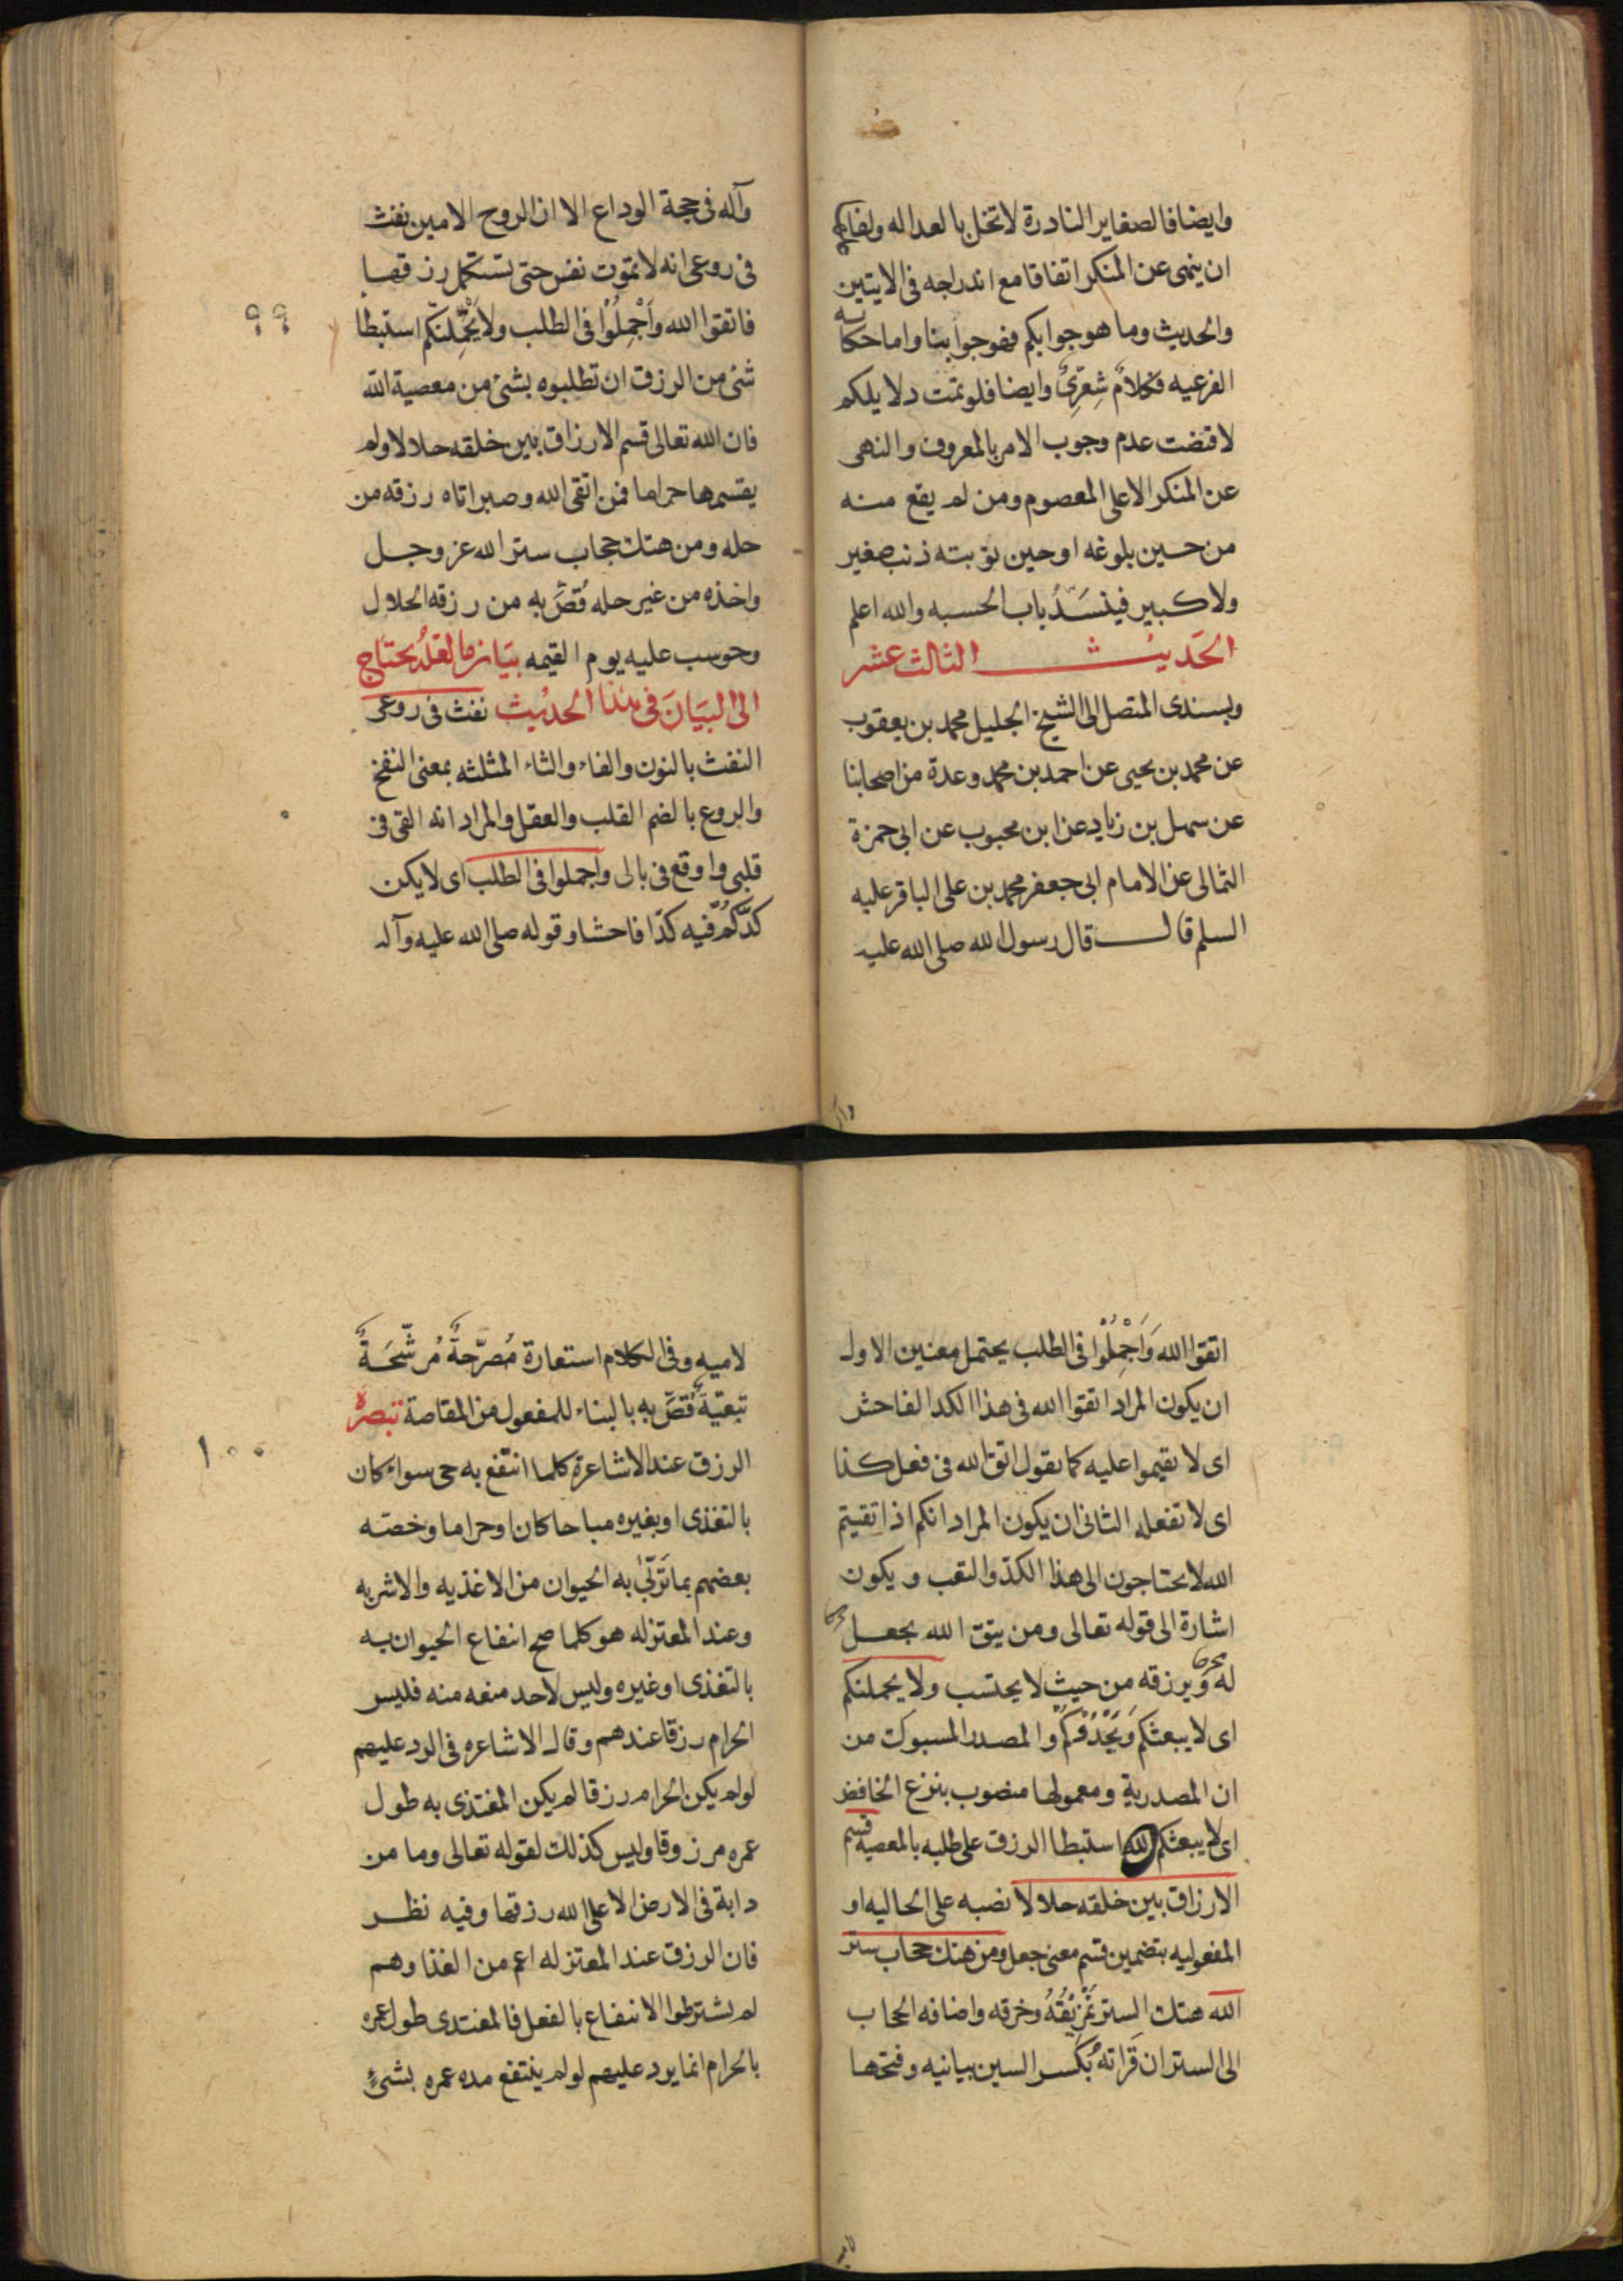 وايضا فالصغاير النادرة لا تخل بالعداله ولفاعلها
ان ينهى عن المنكر اتفاقا مع اندراجه فى الايتين
والحديث وما هو جوابكم فهو جوابنا واما حكاية
الفرعيه فكلامٌ شِعرِىٌّ وايضا فلو تمت دلايلكم
لاقتضت عدم وجوب الامر بالمعروف والنهى
عن المنكر الا على المعصوم ومن لم يقع منه
من حين بلوغه او حين توبته ذنب صغير
ولا كبير فينسَدُّ باب الحسبه والله اعلم
الحَديث الثالث عشر
وبسندى المتصل الى الشيخ الجليل محمد بن يعقوب
عن محمد بن يحيى عن احمد بن محمد وعدة من اصحابنا
عن سهل بن زياد عن ابن محبوب عن ابى حمزة
الثمالى عن الامام ابى جعفر محمد بن على الباقر عليه
السلم قال قال رسول الله صلى الله عليه
وآله فى حجة الوداع الا ان الروح الامين نفث
فى روعى انه لا تموت نفس حتى تستكمل رزقها
فاتقوا الله وَاَجْمِلُوْا فى الطلب ولا يَحْمِلنّكم استبطا
٩٩
شئ من الرزق ان تطلبوه بشئ من معصية الله
فان الله تعالى قسم الارزاق بين خلقه حلالا ولم
يقسمها حراما فمن اتقى الله وصبر اتاه رزقه من
حله ومن هتك حجاب ستر الله عز وجل
واخذه من غير حله قُصَّ بِه من رزقه الحلال
وحوسب عليه يوم القيمه بيَان ما لعَلّه يحتاج
الى البيَان فى هذا الحديث نفث فى روعى
النفث بالنون والفاء والثاء المثلثه بمعنى النفخ
والروع بالضم القلب والعقل والمراد انه القى فى
قلبى واوقع فى بالى واجملوا فى الطلب اى لا يكن
كدّكُم فيه كدّا فاحشا وقوله صلى الله عليه وآله
اتقوا الله وَاَجْمِلُوْا فى الطلب يحتمل معنين الاول
ان يكون المراد اتقوا الله فى هذا الكد الفاحش
اى لا تقيموا عليه كما تقول اتق الله فى فعل كذا
اى لا تفعله الثانى ان يكون المراد انكم اذا تقيتم
الله لا تحتاجون الى هذا الكدّ والتعب ويكون
اشارة الى قوله تعالى ومن يتق الله يجعل
له مخرجا ويرزقه من حيث لا يحتسب ولا يحملنكم
اى لا يبعثكم وَيَحْدُوكُمْ والمصدر المسبوك من
ان المصدرية ومعمولها منصوب بنزع الخافض
اى لا يبعثكم استبطا الرزق على طلبه بالمعصية قسم
الارزاق بين خلقه حلالا نصبه على الحاليه او
المفعوليه بتضمين قسم معنى جعل ومن هتك حجاب ستر
الله هتك الستر تَمْزِيْقُهُ وخرقه واضافه الحجاب
الى الستر ان قَراتَهُ بكَسر السين بيانيه وفتحها
لاميه وفى الكلام استعارة مُصرّحةٌ مُرشّحَةٌ
تبعّيةٌ قُصَّ بِه بالبناء للمفعول من المقاصة تبصره
الرزق عند الاشاعرة كلما انتفع به حى سواء كان
١٠٠
بالتغذى او بغيره مباحا كان او حراما وخصّه
بعضهم بما تَربّى به الحيوان من الاغذيه والاشربه
وعند المعتزله هو كلما صح انتفاع الحيوان به
بالتغذى او غيره وليس لاحد منعه منه فليس
الحرام رزقا عندهم وقال الاشاعره فى الرد عليهم
لو لم يكن الحرام رزقا لم يكن المغتذى به طول
عمره مرزوقا وليس كذلك لقوله تعالى وما من
دابة فى الارض الا على الله رزقها وفيه نظر
فان الرزق عند المعتزله اعم من الغذا وهم
لم يشترطوا الانتفاع بالفعل فالمغتذى طول عمره
بالحرام انما يرد عليهم لو لم ينتفع مده عمره بشئٍ